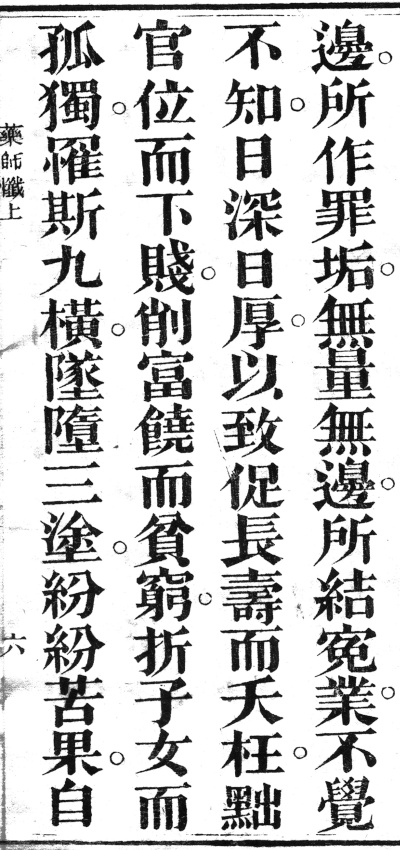 邊。所作罪垢。無量無邊。所結寃業。不覺
不知。日深日厚。以致促長壽而夭枉。黜
官位而下賤。削富饒而貧窮。折子女而
孤獨。罹斯九橫。墜墮三塗。紛紛苦果。自
藥師懺上 六